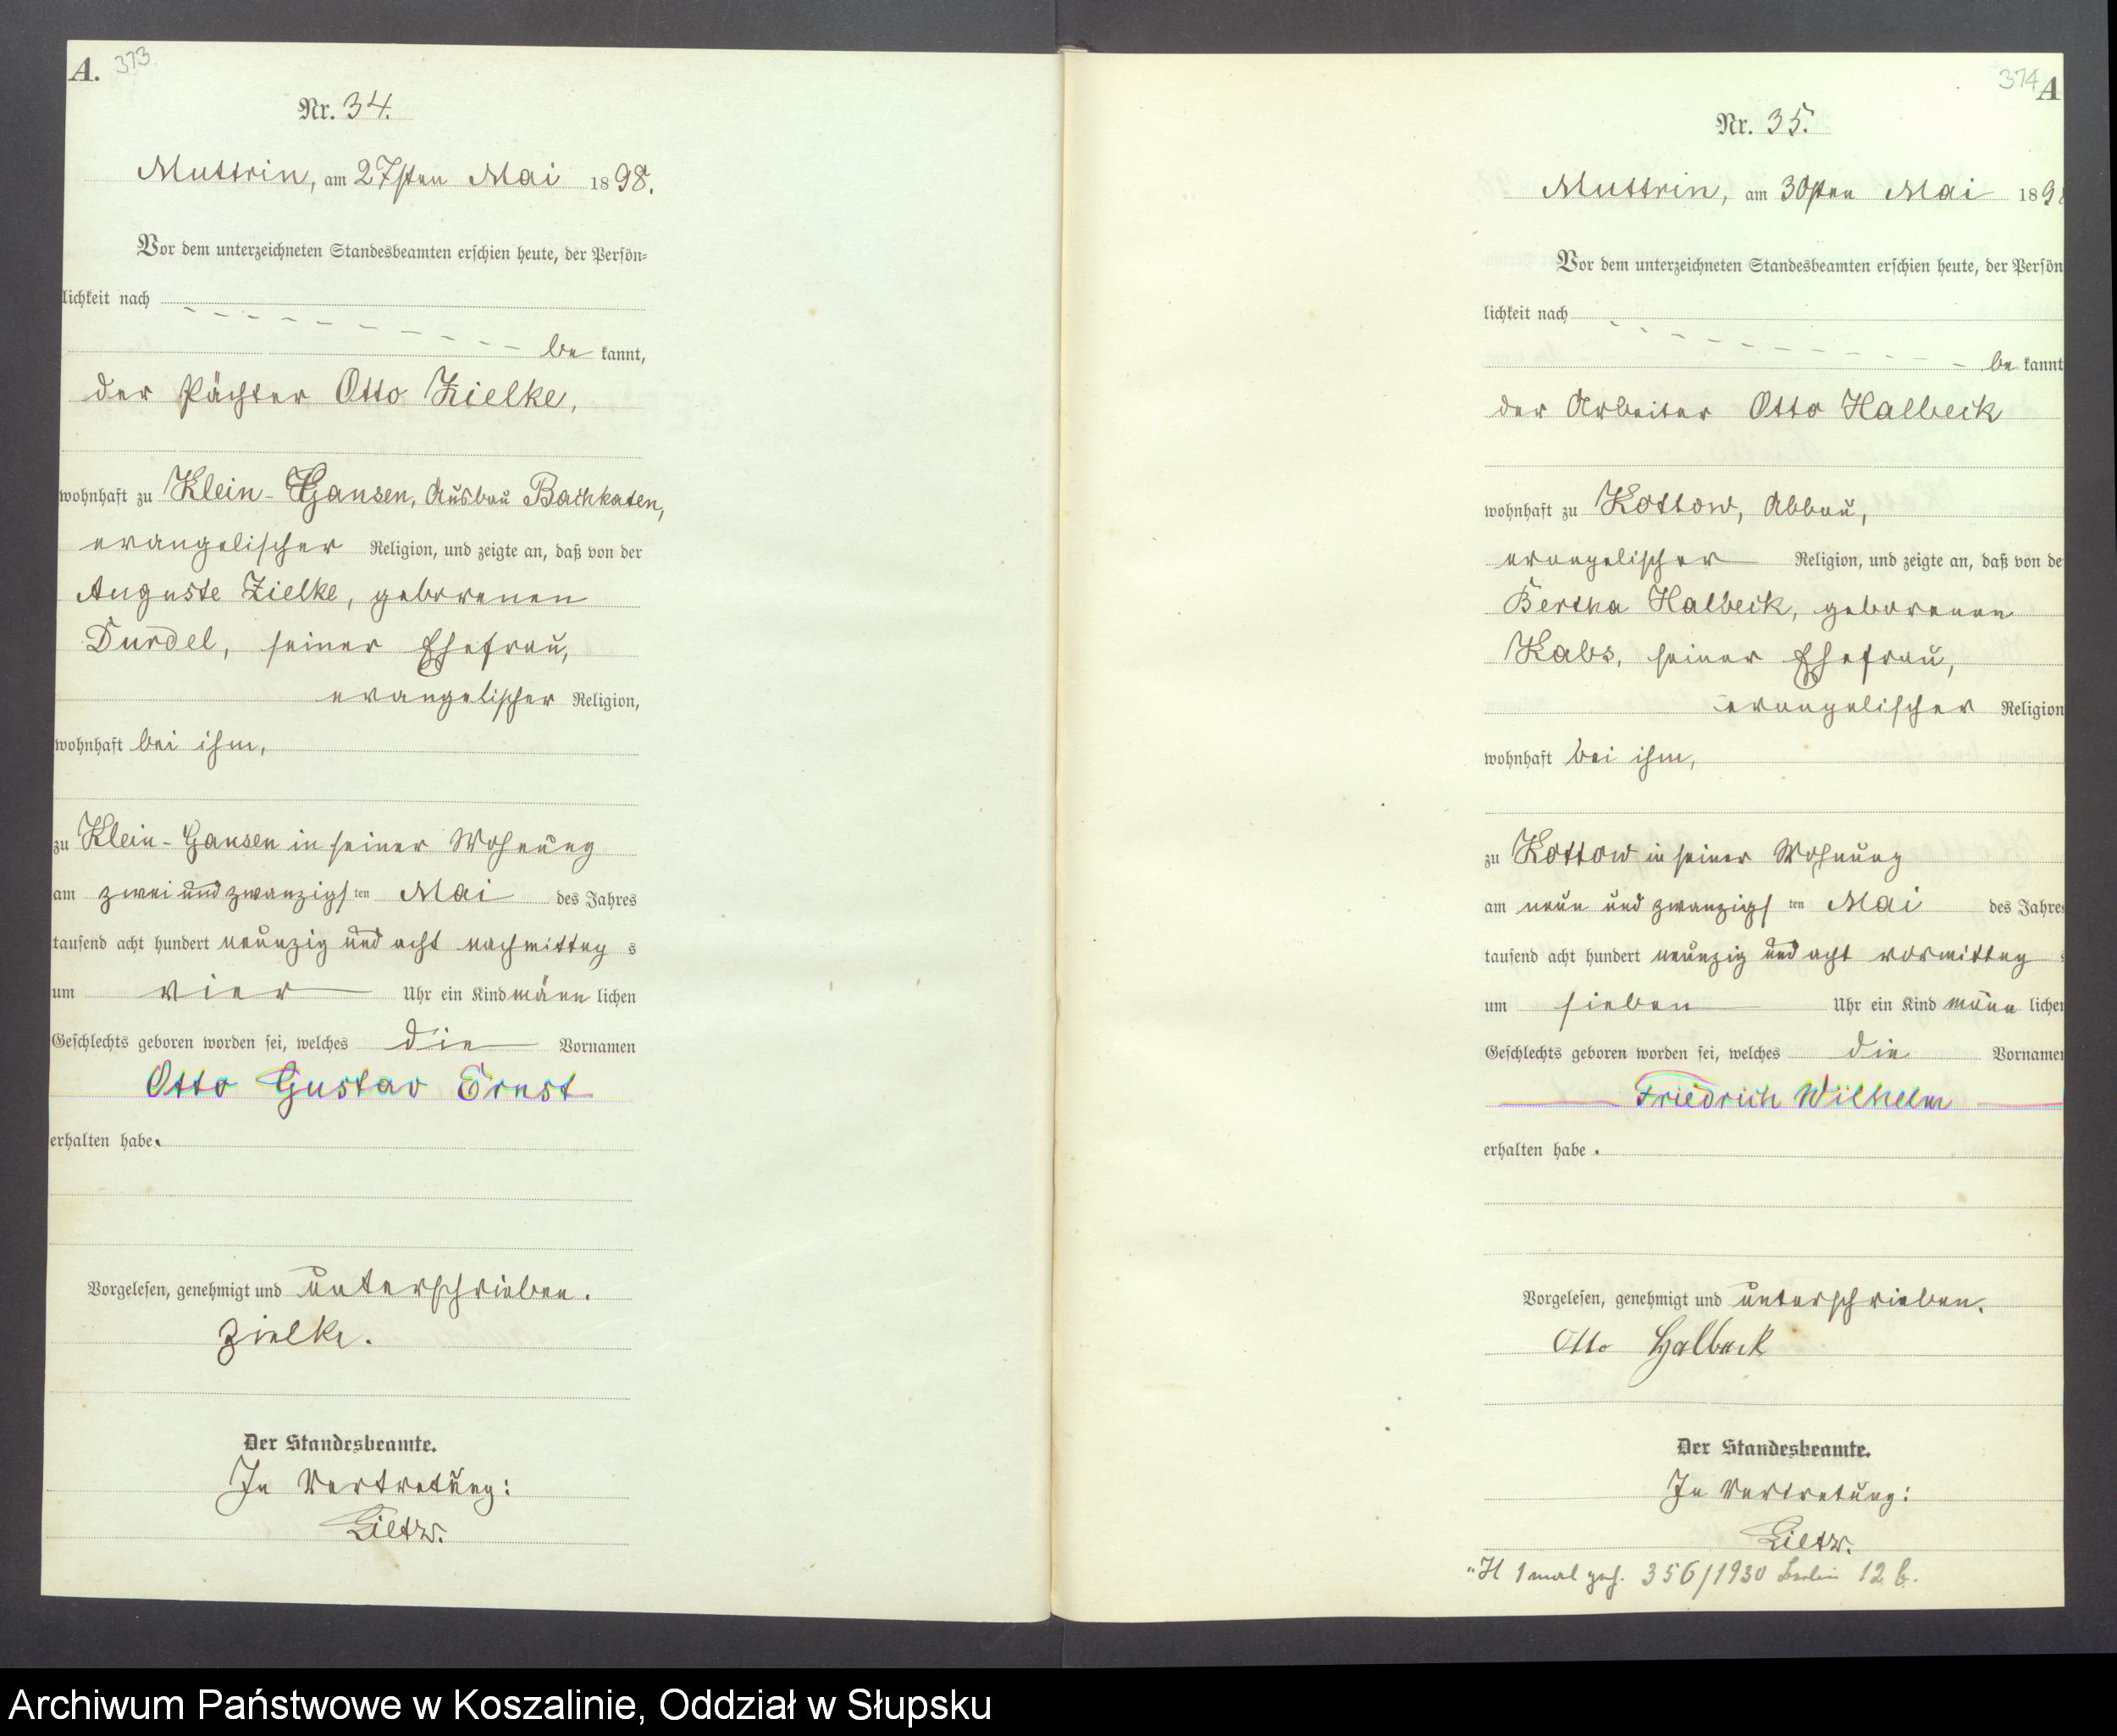 A. 373.
Nr. 34.
Muttrin, am 27sten Mai 1898.
Vor dem unterzeichneten Standesbeamten erschien heute, der Persön-
lichkeit nach
be kannt,
der Pächter Otto Zielke,
wohnhaft zu Klein-Gansen, Ausbau Bachkaten,
evangelischer Religion, und zeigte an, daß von der
Auguste Zielke, geborenen
Durdel, seiner Ehefrau,
evangelischer Religion,
wohnhaft bei ihm,
zu Klein-Gansen in seiner Wohnung
am zwei und zwanzigs ten Mai des Jahres
tausend acht hundert neunzig und acht nachmittag s
um vier Uhr ein Kind männ lichen
Geschlechts geboren worden sei, welches die Vornamen
Otto Gustav Ernst
erhalten habe.
Vorgelesen, genehmigt und unterschrieben.
Zielke.
Der Standesbeamte.
In Vertretung:
374 A
Nr. 35.
Muttrin, am 30sten Mai 189
Vor dem unterzeichneten Standesbeamten erschien heute, der Persön
lichkeit nach
be kannt
der Arbeiter Otto Halbeck
wohnhaft zu Kottow, Abbau,
evangelischer Religion, und zeigte an, daß von de
Bertha Halbeck, geborenen
Kabs, seiner Ehefrau,
evangelischer Religion
wohnhaft bei ihm,
zu Kottow in seiner Wohnung
am neun und zwanzigs ten Mai des Jahre
tausend acht hundert neunzig und acht vormittag
um sieben Uhr ein Kind männ liche
Geschlechts geboren worden sei, welches die Vorname
Friedrich Wilhelm
erhalten habe.
Vorgelesen, genehmigt und unterschrieben.
Otto Halbeck
Der Standesbeamte.
In Vertretung:
"H 1 mal gesch. 356/1930 Berlin 12 b.
Archiwum Państwowe w Koszalinie, Oddział w Słupsku